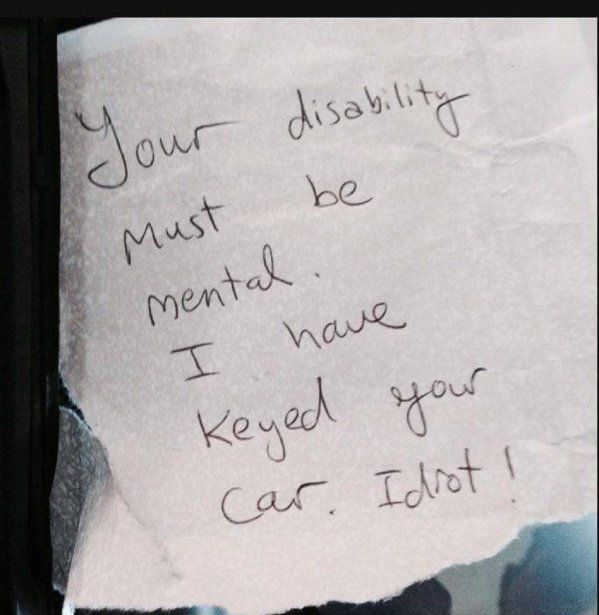 Your disability
Must be
mental.
I have
keyed your
car. Idiot!